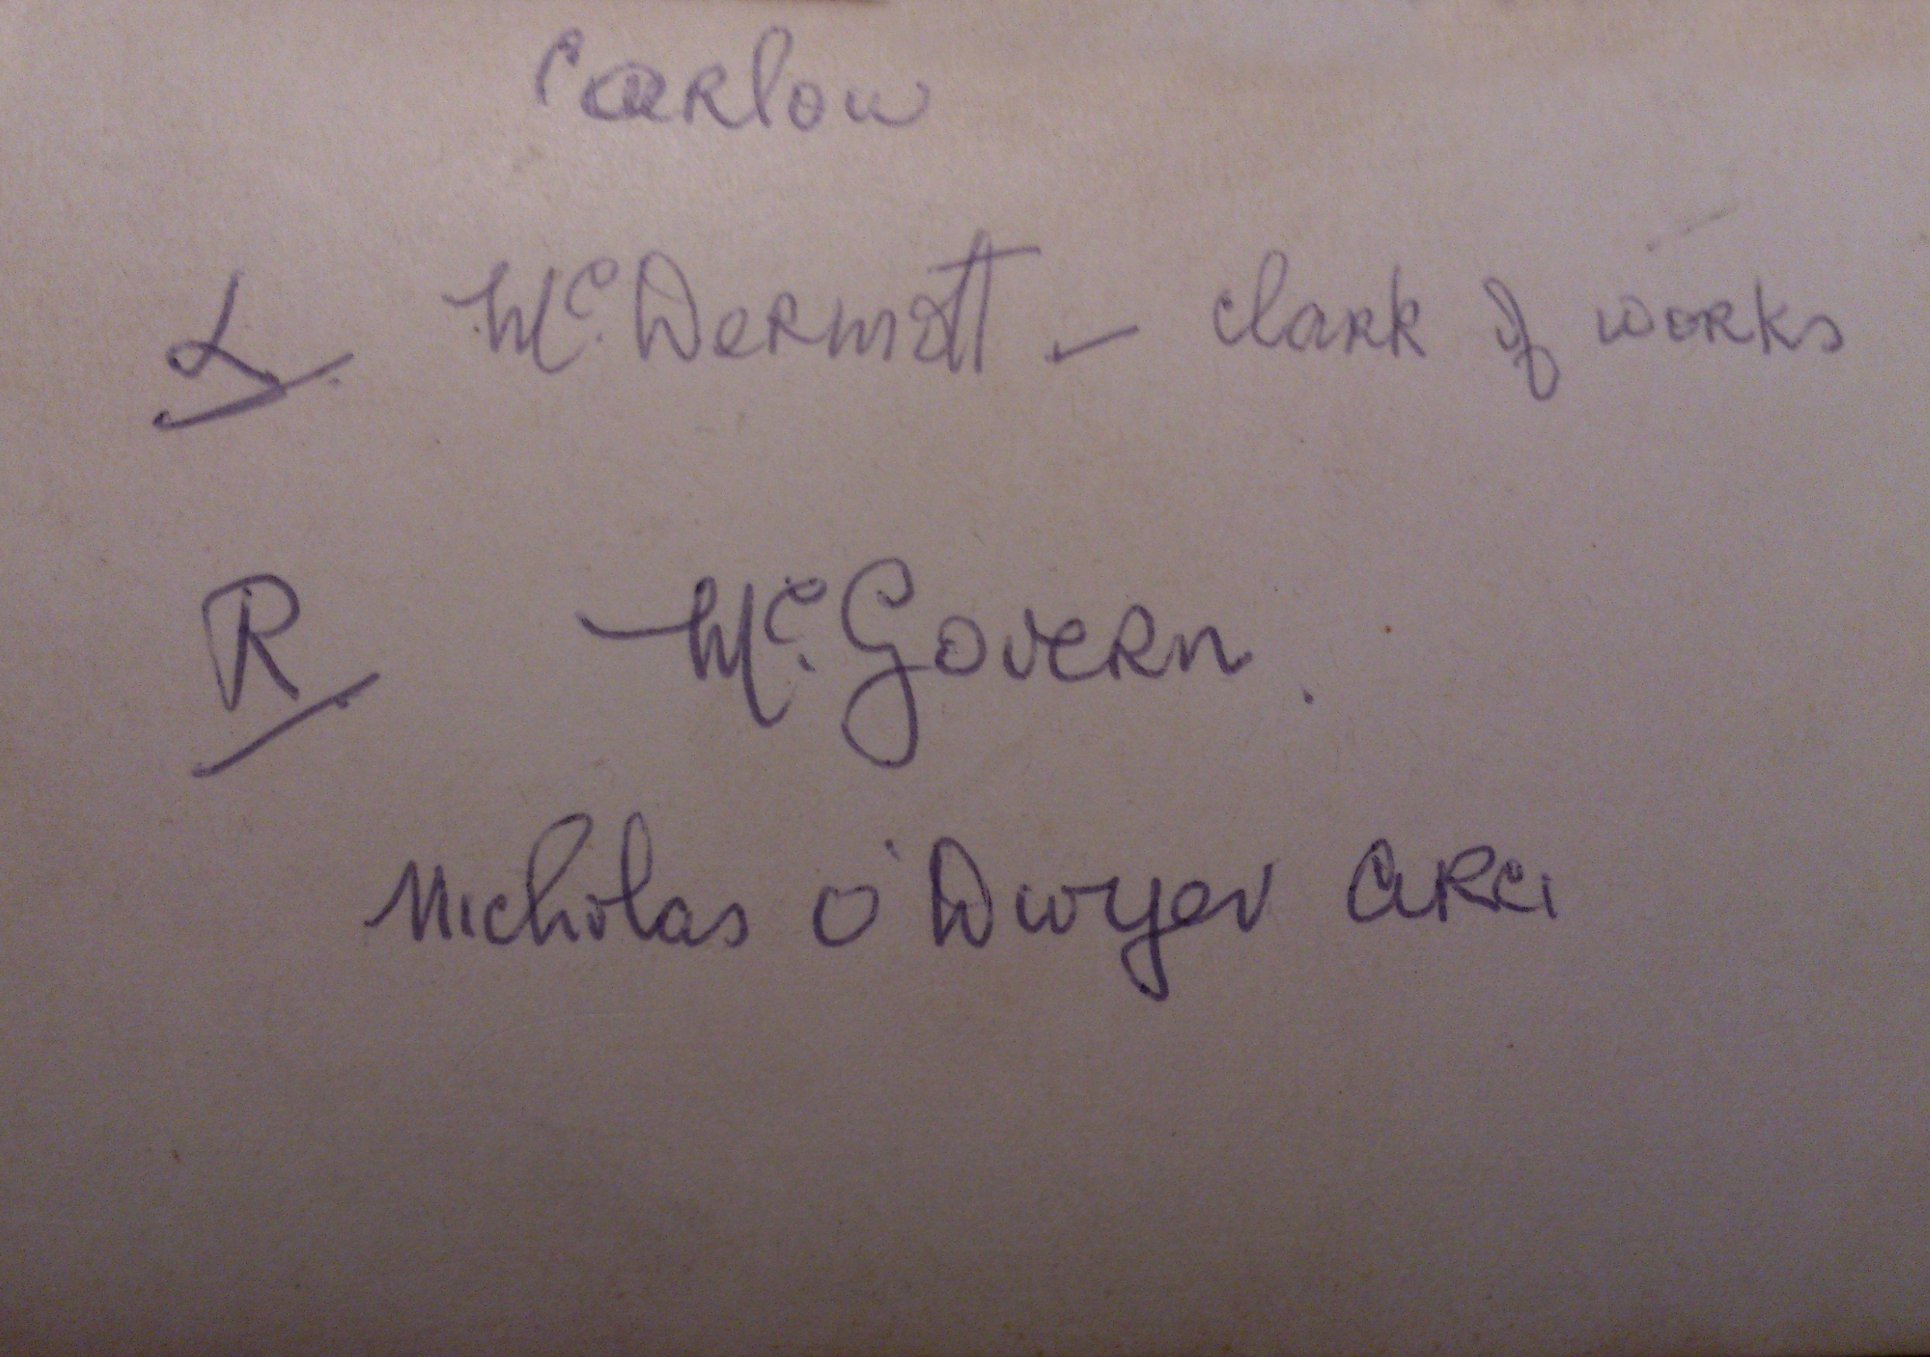 Carlow
L. McDermott – Clark of works
R. Mc.Govern.
Nicholas O'Dwyer